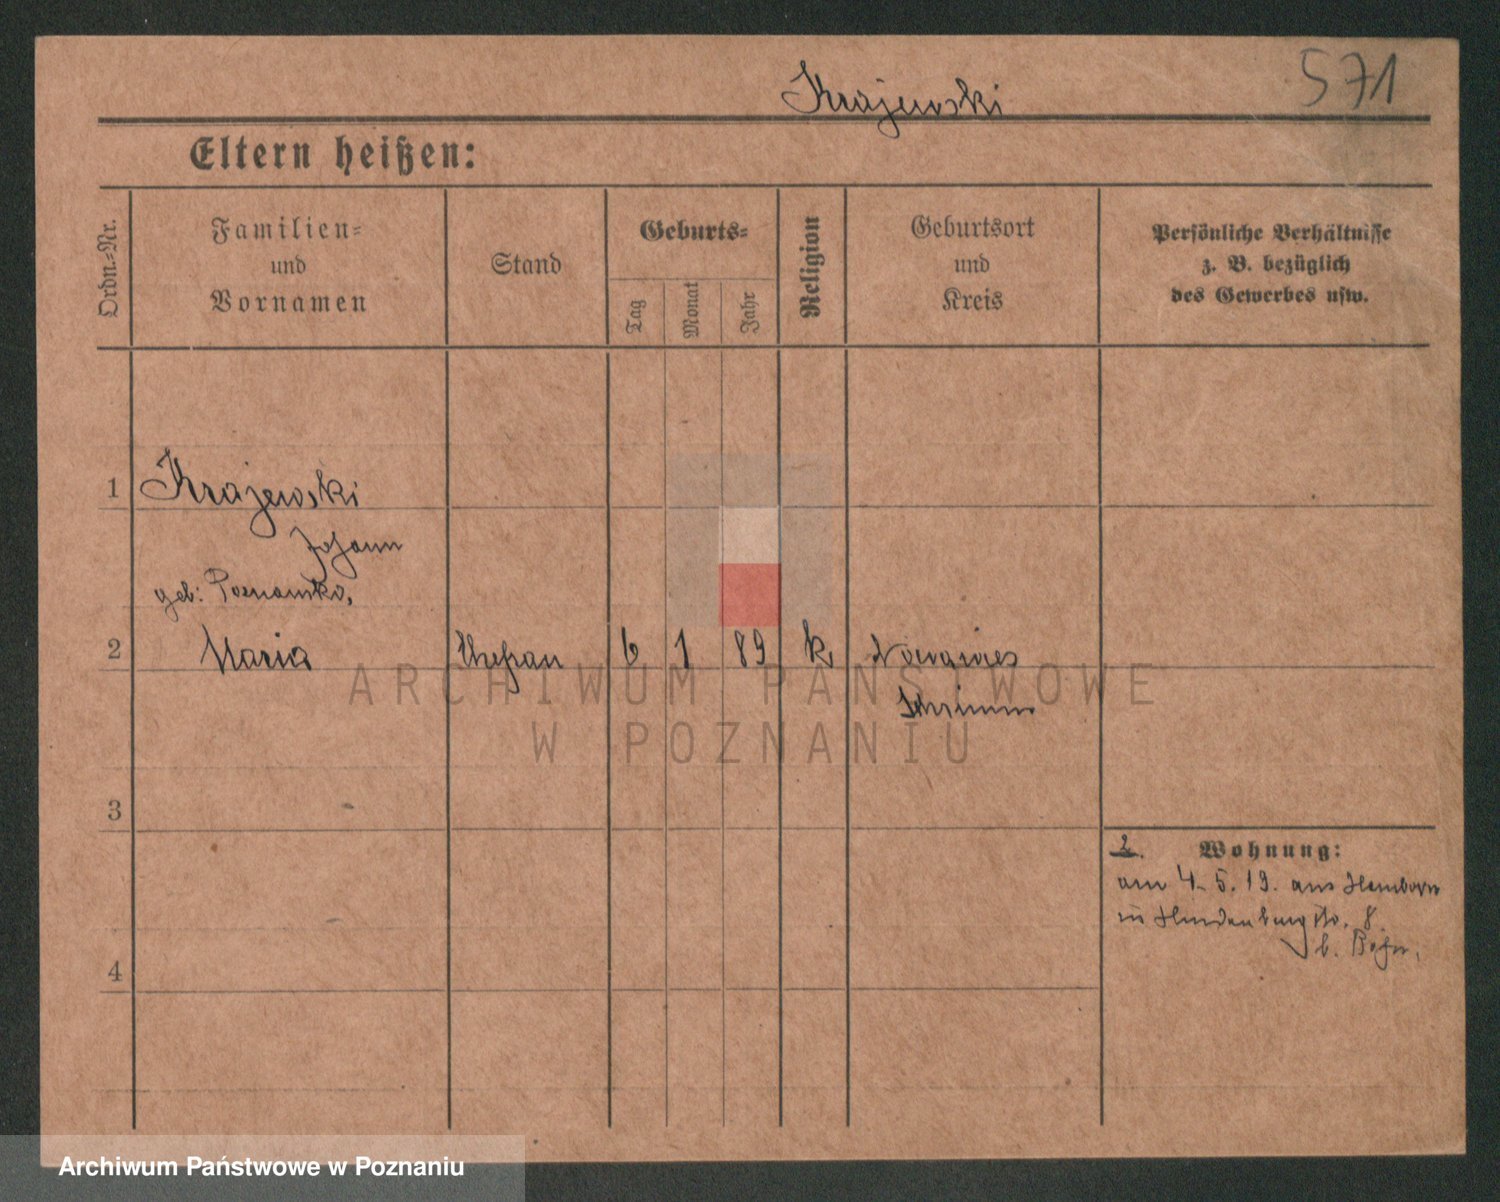 Krajewski
571
Eltern heißen:
Ordn.=Nr.
Familien=
und
Vornamen
Stand
Geburts=
Tag
Monat
Jahr
Religion
Geburtsort
und
Kreis
Persönliche Verhältnisse
z. B. bezüglich
des Gewerbes usw.
1 Krajewski
Johann
geb: Poznanska,
2 Maria Ehefrau 6 1 89 k Nowawies
Schrimm
ARCHIWUM PAŃSTWOWE
W POZNANIU
3
2. Wohnung:
am 4.5.19. aus Hamborn
in Hindenburgstr. 8
b.
4
Archiwum Państwowe w Poznaniu